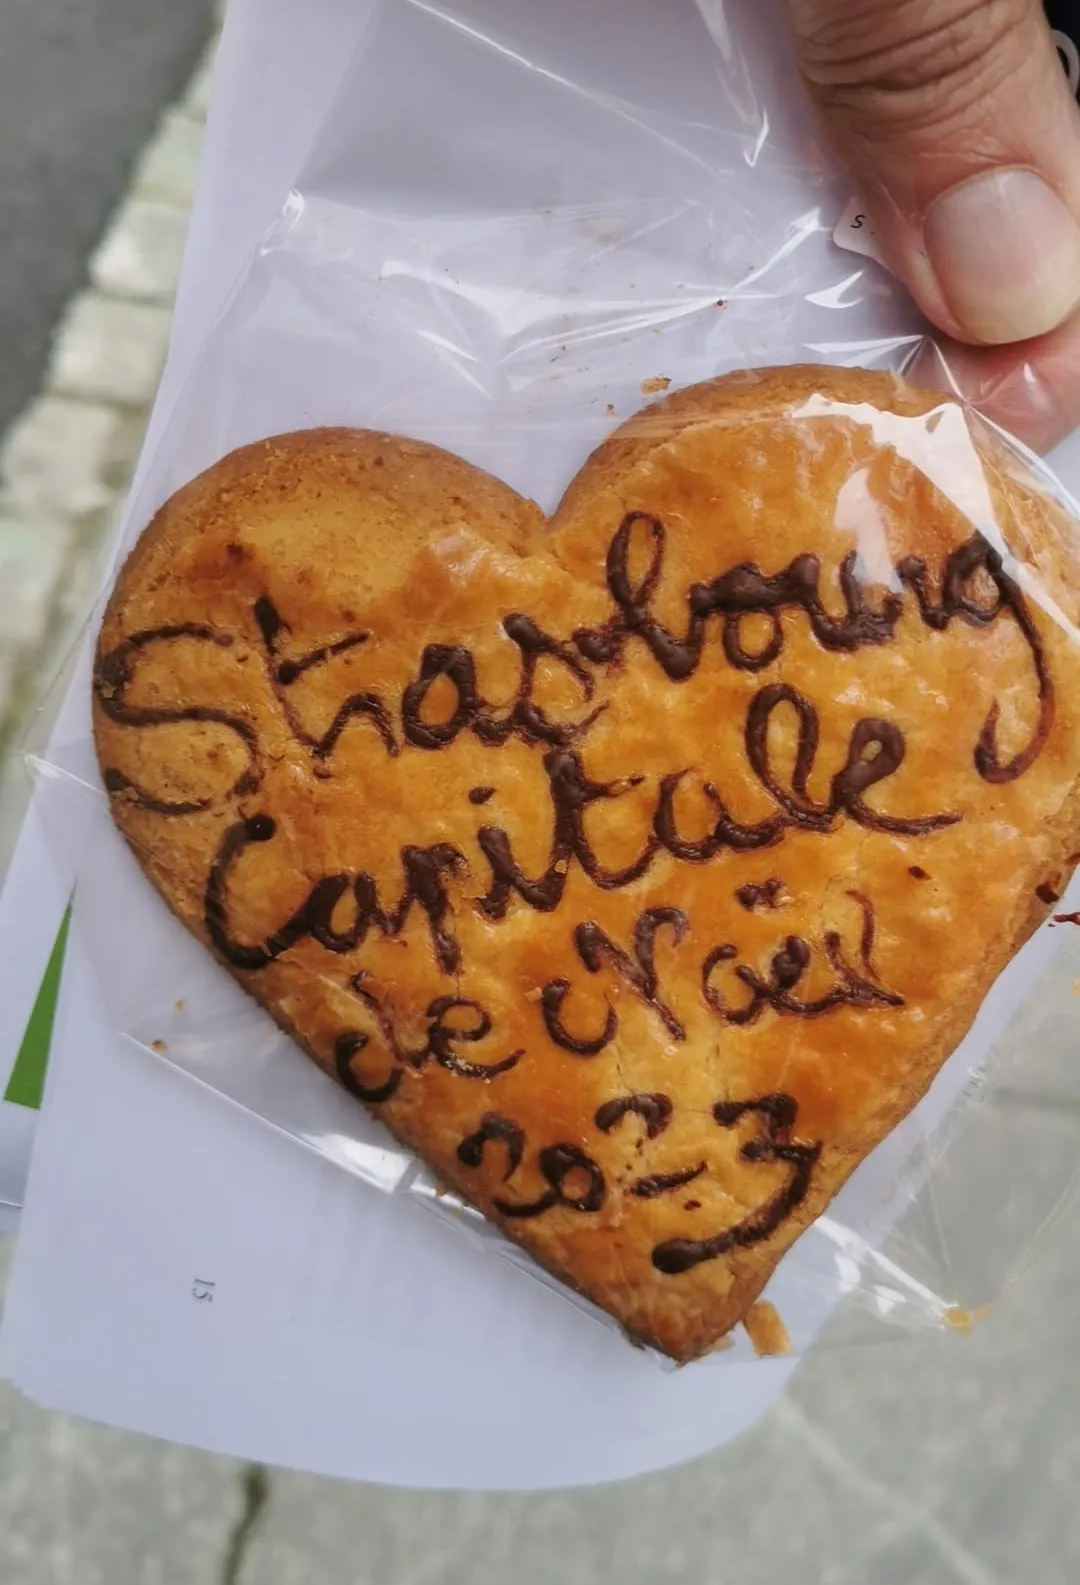 Strasbourg
Capitale
de Noël
2023
15
S